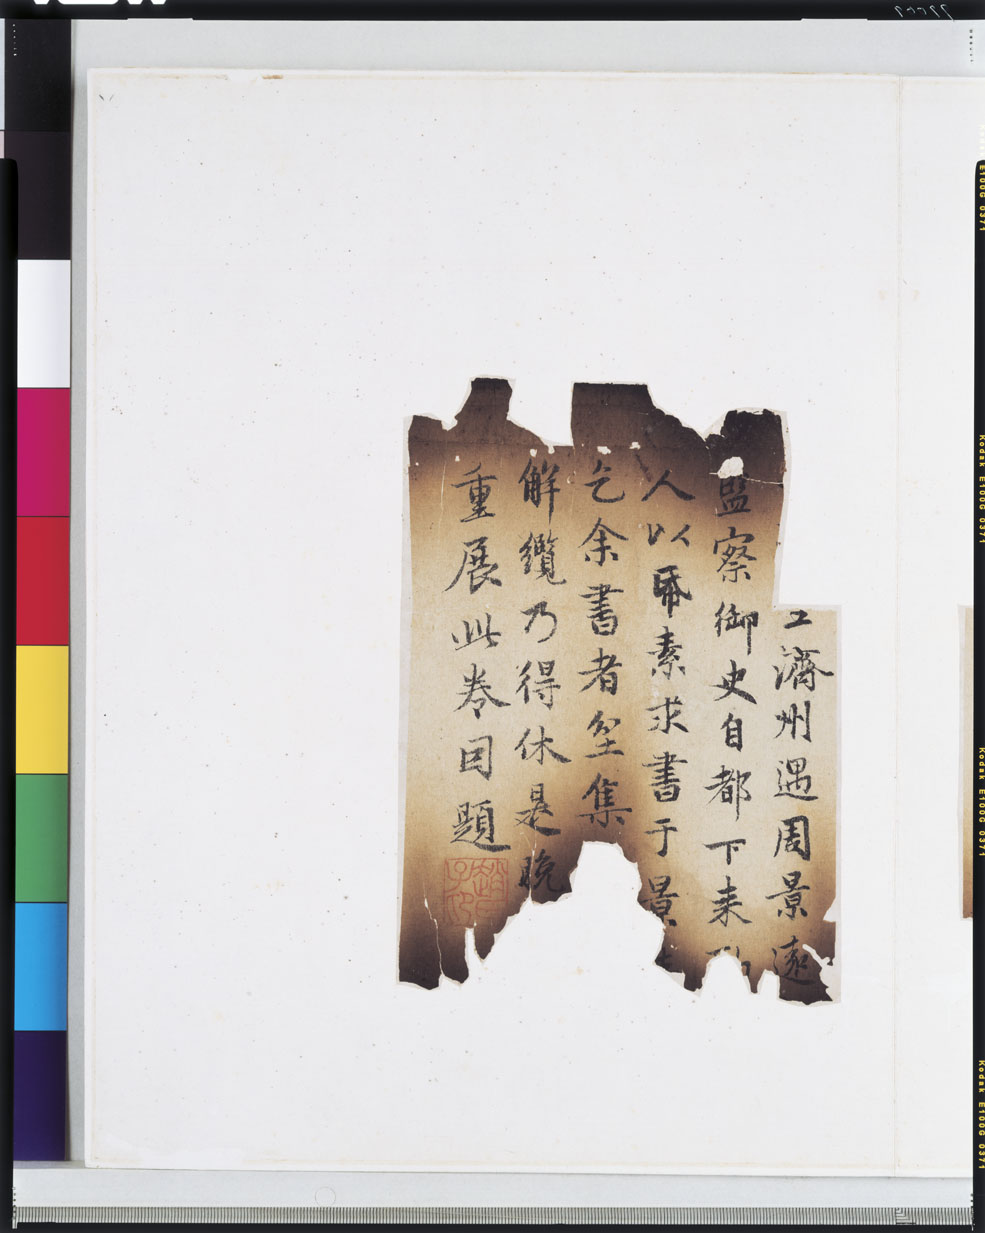 濟州遇周景遠
監察御史自都下来
人以帋素求書于景
乞余書者坌集
觧纜乃得休是晚
重展此卷囙題
趙氏子昂
E100G 0371
Kodak E100G 0371
Kodak E100G 0371
Kodak E100G 0371